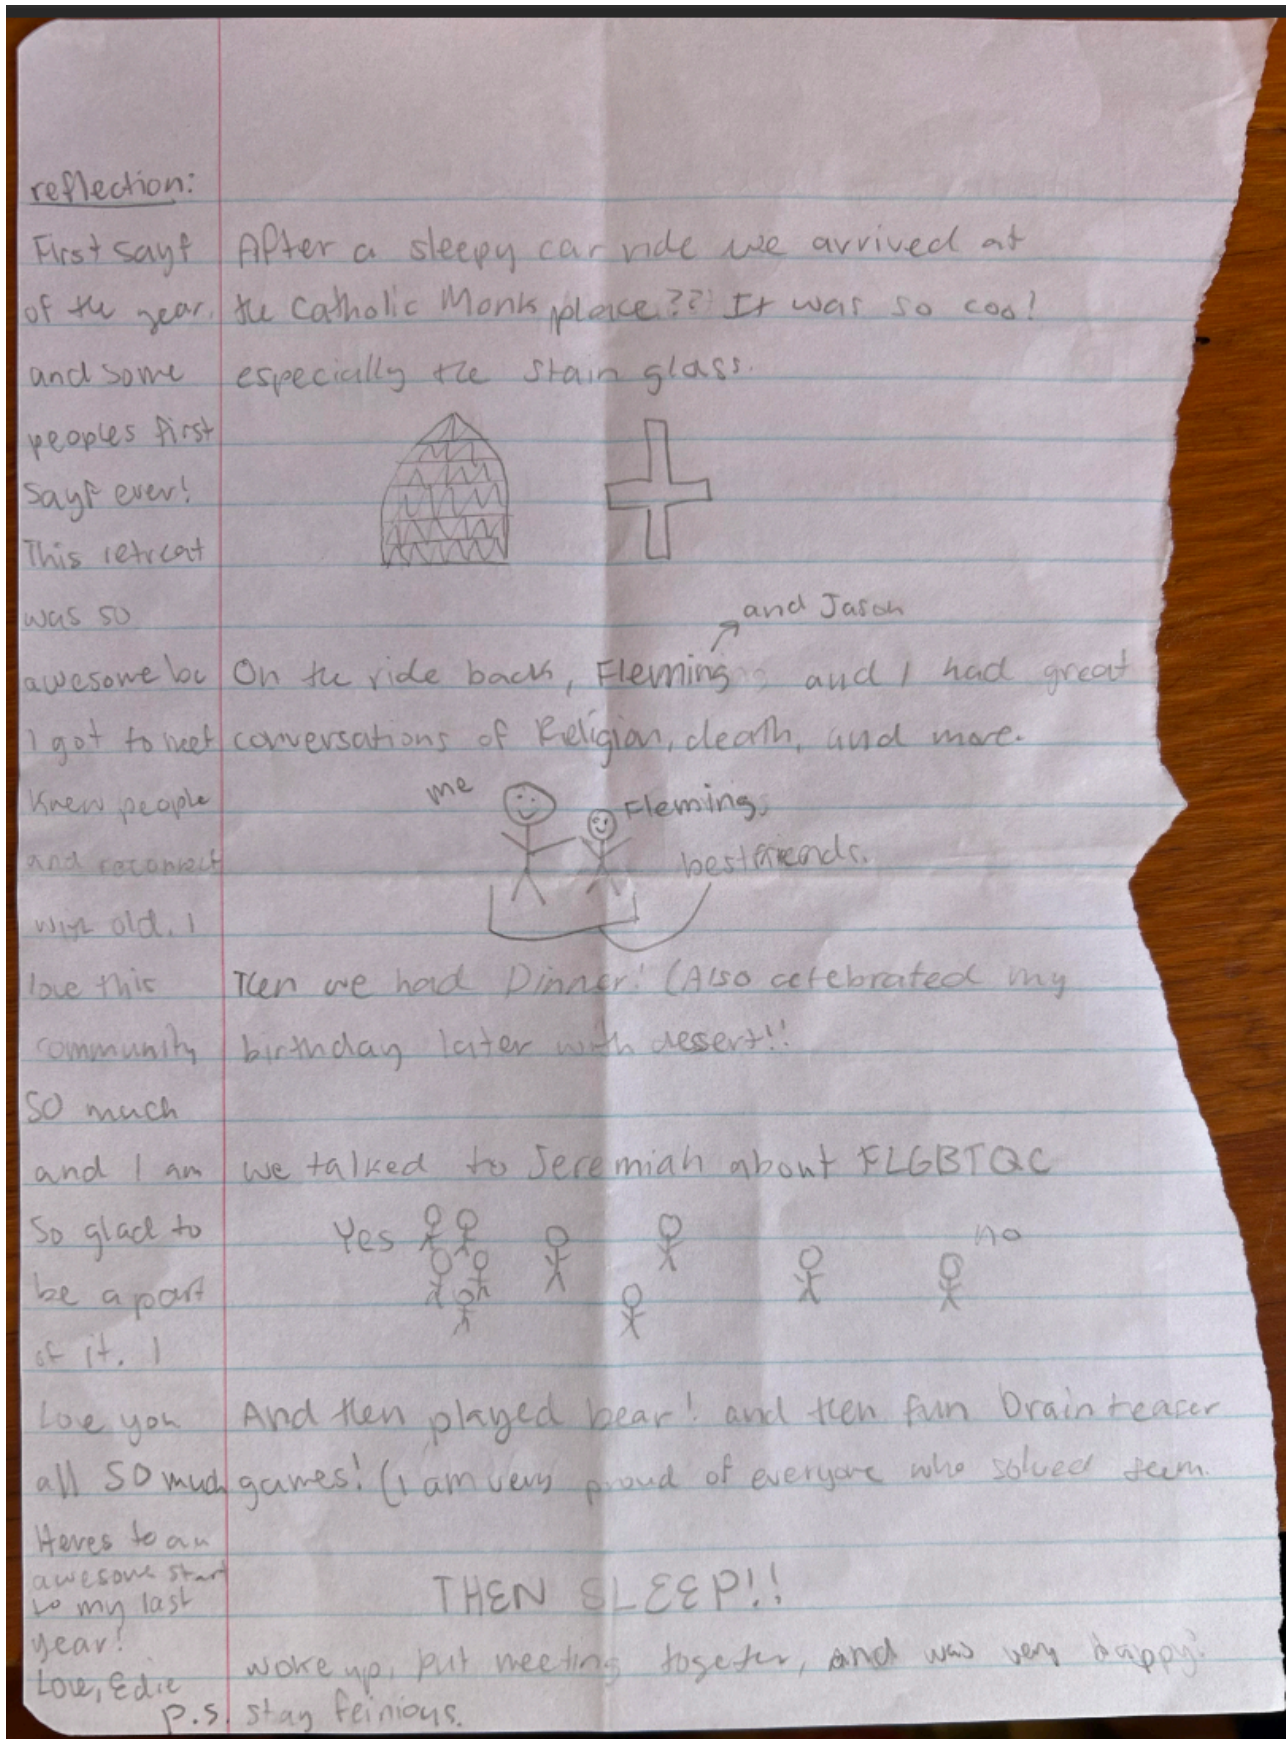 reflection:
First sayf
of the year,
and some
peoples first
sayf ever!
This retreat
was so
awesome bc
I got to meet
knew people
and reconnect
with old. I
love this
community
SO much
and I am
so glad to
be a part
of it. I
Love you
all SO much
Heres to an
awesome start
to my last
year!
Love, Edie
After a sleepy car ride we arrived at
the Catholic Monk place?? It was so cool
especially the stain glass.
and Jason
On the ride back, Fleming, and I had great
conversations of Religion, death, and more.
me
Fleming
bestfriends.
Then we had Dinner! (Also celebrated my
birthday later with desert!!
we talked to Jeremiah about FLGBTQC
Yes
no
And then played bear! and then fun brain teaser
games! (I am very proud of everyone who solved them.
THEN SLEEP!!
woke up, put meeting together, and was very happy!
p.s. stay